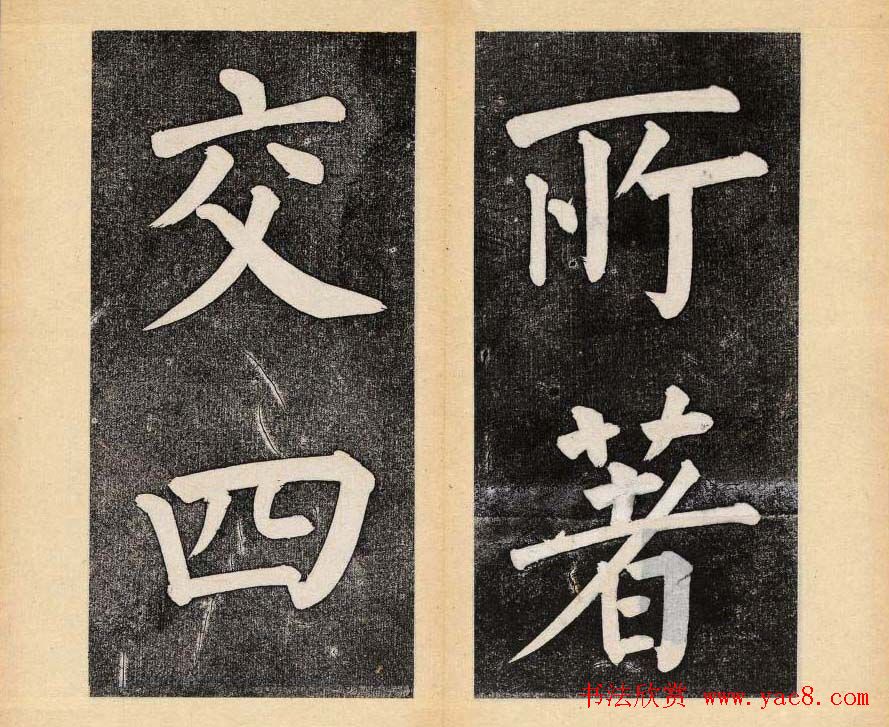 所著
交四
书法欣赏 www.yac8.com